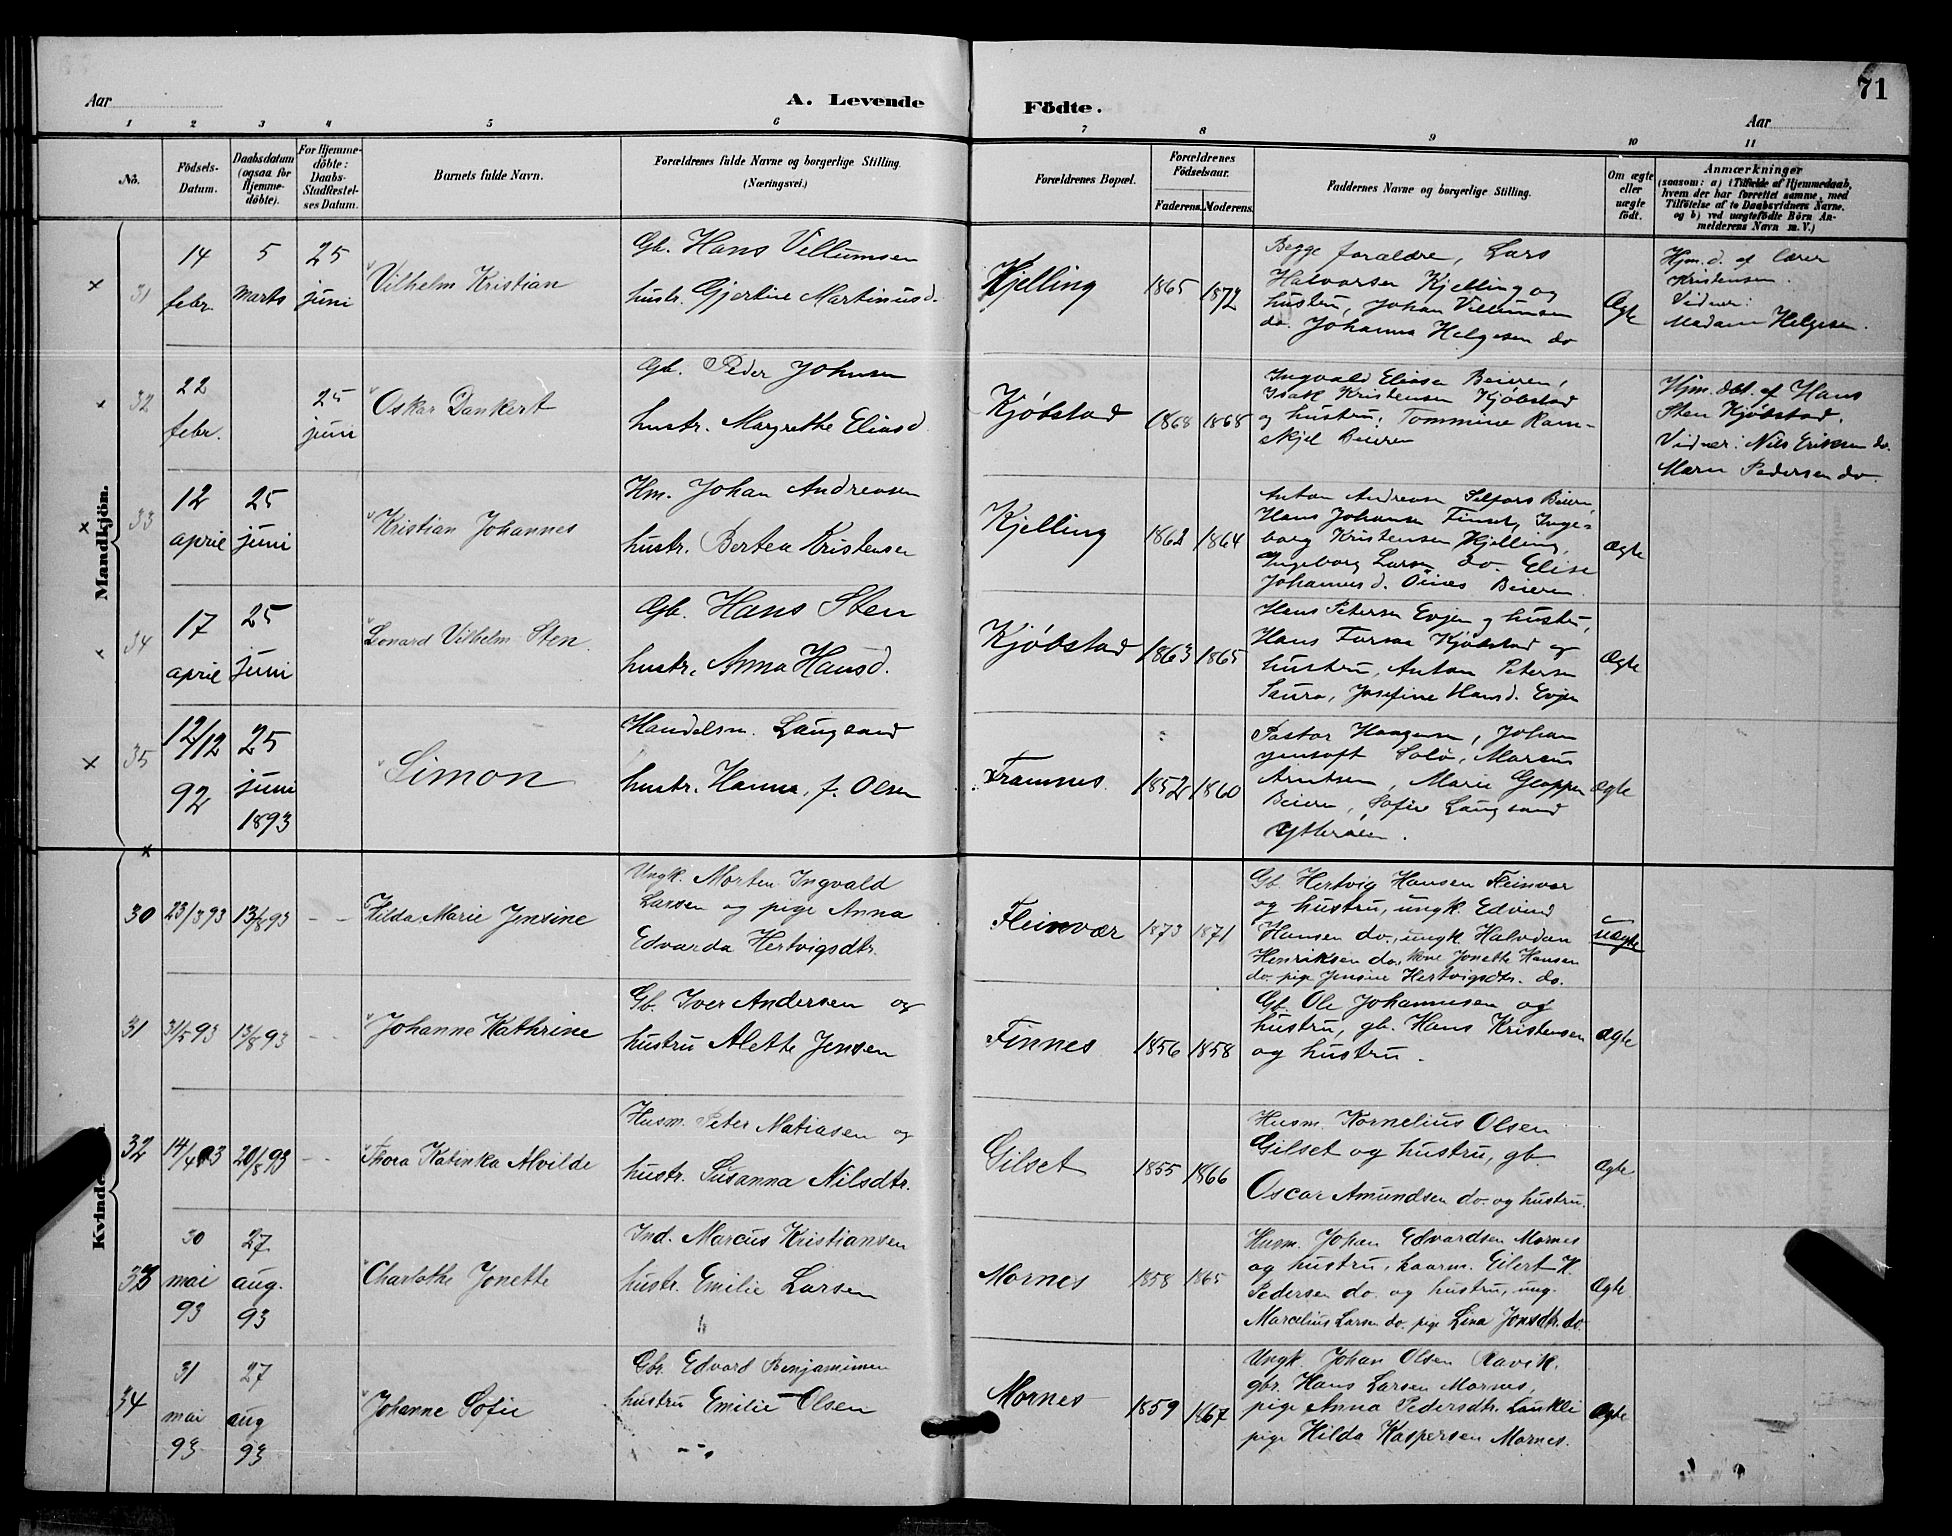 71
Aar
A. Levende Födte.
Aar
1 2 3 4 5 6 7 8 9 10 11
No.
Födsels-Datum.
Daabsdatum (ogsaa for Hjemmedöbte).
For Hjemmedöbte: Daabs-Stadfæstelses Datum.
Barnets fulde Navn.
Forældrenes fulde Navne og borgerlige Stilling.
(Næringsvei.)
Forældrenes Bopæl.
Forældrenes Födselsaar.
Faderens. Moderens.
Faddernes Navne og borgerlige Stilling.
Om ægte eller uægte födt.
Anmærkninger
(saasom: a) i Tilfælde af Hjemmedaab,
hvem der har forrettet samme, med
Tilföielse af to Daabsvidners Navne,
og b) ved uægtefödte Börn An-
melderens Navn m. V.)
Mandkjön.
31
14 febr.
5 marts
25 juni
Vilhelm Kristian
Gb. Hans Villumsen
hustr. Gjertine Martinusd.
Kjelling
1865 1872
Begge forældre, Lars
Halvorsen Kjelling og
hustru, Johan Villumsen
do. Johanna Helgesen do
Ægte
Hjm.d. af lærer
Kristensen.
Vidner:
Madam Helgesen.
32
22 febr.
25 juni
Oskar Dankert
Gb. Peder Johnsen
hustr. Margrethe Eliasd.
Kjöbstad
1868 1868
Ingvald Eliasen Beieren,
Isak Kristensen Kjöbstad
og hustru, Tommine Ram-
skjel Beieren
Hjm. döbt af Hans
Sten Kjöbstad.
Vidner: Nils Eriksen do.
Maren Pedersen do
33
12 april
25 juni
Kristian Johannes
Hm. Johan Andreasen
hustr. Bertea Kristensen
Kjelling
1862 1864
Anton Andreasen Selfors Beieren,
Hans Johansen Finset, Inge-
borg Kristensen Kjelling,
Ingeborg Larsen do. Elise
Johannesd. Öines Beieren.
Ægte
34
17 april
25 juni
Lenard Vilhelm Sten.
Gb. Hans Sten
hustr. Anna Hansd.
Kjöbstad
1863 1865
Hans Petersen Evjen og hustru,
Hans Kjöbstad og
hustru, Anton Petersen
Saura, Josefine Hansd. Evjen
Ægte
35
12/12 92
25 juni 1893
Simon
Handelsm. Langsand
hustr. Hanna, f. Olsen
Framnes.
1852 1860
Pastor Haagensen, Johan
Solö, Marcus
Arntsen, Marie Gloppen
Beieren, Sofie Langsand
Ytteröen.
Ægte
Kvinde
30
23/3 93
13/8 93
Hilda Marie Jensine
Ungk. Morten Ingvald
Larsen og pige Anna
Edvarda Hertvigsdtr.
Fleinvær
1873 1871
Gb. Hertvig Hansen Fleinvær
og hustru, ungk. Edvind
Hansen do., ungk. Halvdan
Henriksen do. kone Jonette Hansen
do. pige Jensine Hertvigsdtr. do.
uægte
31
31/5 93
13/8 93
Johanne Kathrine
Gb. Iver Andersen og
hustru Alette Jensen
Finnes
1856 1858
Gb. Ole Johannesen og
hustru, gb. Hans Kristensen
og hustru.
Ægte
32
14/4 93
20/8 93
Thora Katinka Alvilde
Husm. Peter Matiasen og
hustr. Susanna Nilsdtr.
Gilset
1855 1866
Husm. Kornelius Olsen
Gilset og hustru, gb.
Oscar Amundsen do. og hustru.
Ægte
33
30 mai 93
27 aug. 93
Charlothe Jonette
Ind. Marcus Kristiansen
hustr. Emilie Larsen
Mornes
1858 1865
Husm. Johan Edvardsen Mornes
og hustru, kaarm. Eilert K.
Pedersen do. og hustru, ung.
Marcelius Larsen do. pige Lina Jonsdtr. do.
Ægte
34
31 mai 93
27 aug 93
Johanne Sofie
Gbr. Edvard Benjaminsen
hustru Emilie Olsen
Mornes
1859 1867
Ungk. Johan Olsen Ravik.
gbr. Hans Larsen Mornes,
pige Anna Pedersdtr. Laukli
pige Hilda Kaspersen Mornes.
Ægte